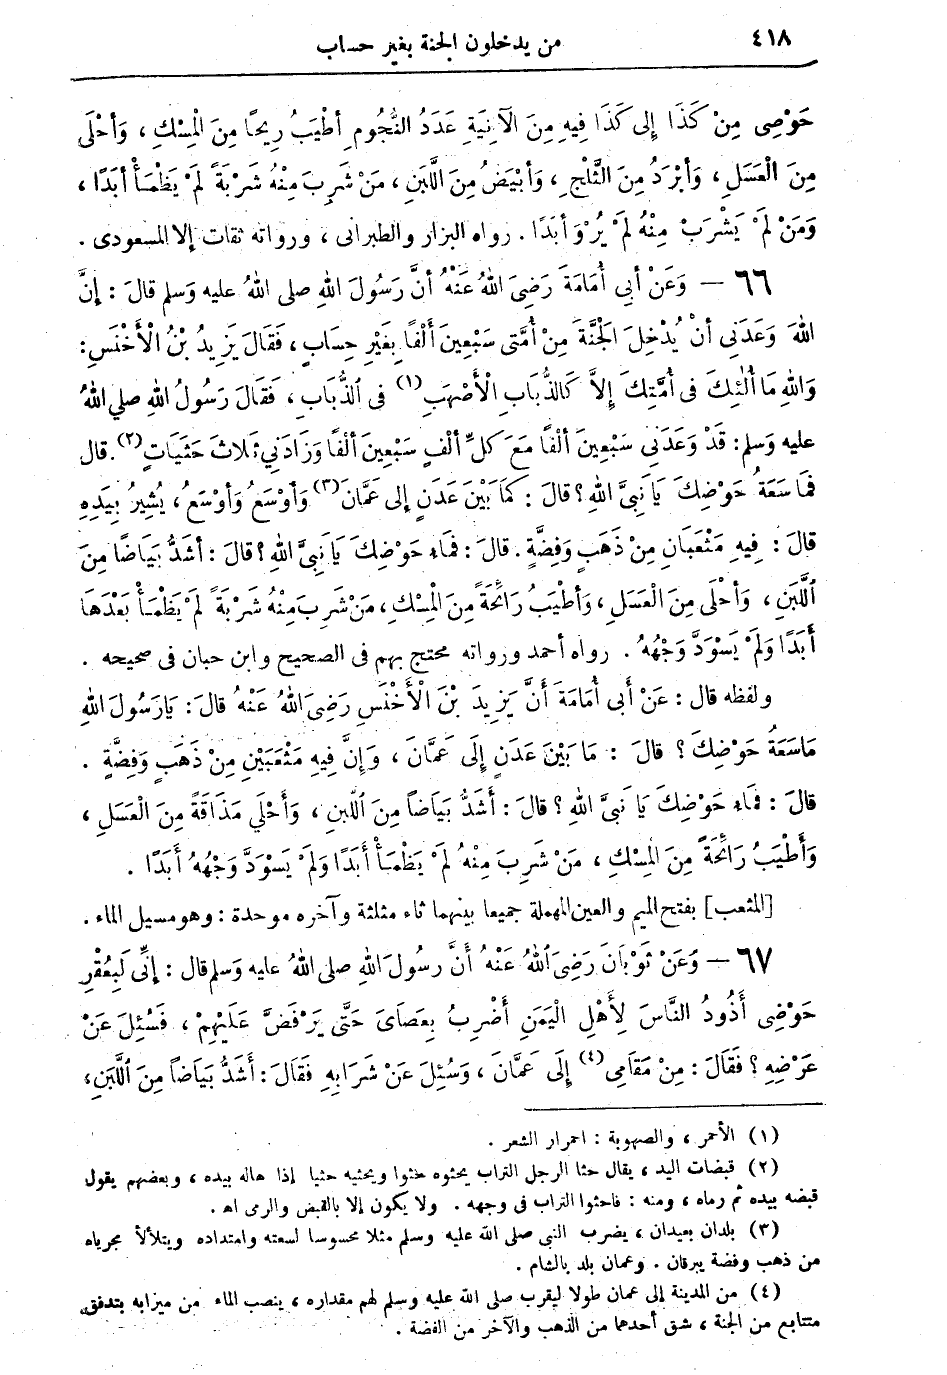 ٤١٨
من يدخلون الجنة بغير حساب
حَوْضِى مِنْ كَذَا إِلَى كَذَا فِيهِ مِنَ الْآنِيَةِ عَدَدُ النُّجُومِ أَطْيَبُ رِيحًا مِنَ الْمِسْكِ ، وَأَحْلَى
مِنَ الْعَسَلِ ، وَأَبْرَدُ مِنَ الثَّلْجِ ، وَأَبْيَضُ مِنَ اللَّبَنِ ، مَنْ شَرِبَ مِنْهُ شَرْبَةً لَمْ يَظْمَأْ أَبَدًا ،
وَمَنْ لَمْ يَشْرَبْ مِنْهُ لَمْ يُرْوَ أَبَدًا . رواه البزار والطبرانى ، ورواته ثقات إلا المسعودى .
٦٦ — وَعَنْ أَبِي أُمَامَةَ رَضِىَ اللهُ عَنْهُ أَنَّ رَسُولَ اللهِ صلى اللهُ عليه وَسلم قالَ : إِنَّ
اللهَ وَعَدَنِي أَنْ يُدْخِلَ الْجَنَّةَ مِنْ أُمَّتِى سَبْعِينَ أَلْفًا بِغَيْرِ حِسَابٍ ، فَقَالَ يَزِيدُ بْنُ الْأَخْنَسِ :
وَاللهِ مَا أُلٰئِكَ فِى أُمَّتِكَ إِلاَّ كَالذُّبَابِ الْأَصْهَبِ (١) فِى الذُّبَابِ ، فَقَالَ رَسُولُ اللهِ صلى اللهُ
عليه وَسلم : قَدْ وَعَدَنِى سَبْعِينَ أَلْفًا مَعَ كلِّ أَلْفٍ سَبْعِينَ أَلْفًا وَزَادَنِي ثَلاثَ حَثَيَاتٍ (٢) . قال
فَمَا سَعَةُ حَوْضِكَ يَا نَبِىَّ اللهِ ؟ قالَ : كَمَا بَيْنَ عَدَنٍ إِلى عَمَّانَ (٣) وَأَوْسَعُ وَأَوْسَعُ ، يُشِيرُ بِيَدِهِ
قالَ : فِيهِ مَثْعَبَانِ مِنْ ذَهَبٍ وَفِضَّةٍ . قالَ : فَمَاءِ حَوْضِكَ يَا نَبِىَّ اللهِ ؟ قالَ : أَشَدُّ بَيَاضًا مِنَ
اللَّبَنِ ، وَأَحْلَى مِنَ الْعَسَلِ ، وَأَطْيَبُ رَائِحَةً مِنَ الْمِسْكِ ، مَنْ شَرِبَ مِنْهُ شَرْبَةً لَمْ يَظْمَأْ بَعْدَهَا
أَبَدًا وَلَمْ يَسْوَدَّ وَجْهُهُ . رواه أحمد ورواته محتج بهم فى الصحيح وابن حبان فى صحيحه .
ولفظه قال : عَنْ أَبِي أُمَامَةَ أَنَّ يَزِيدَ بْنَ الْأَخْنَسِ رَضِىَ اللهُ عَنْهُ قالَ : يَارَسُولَ اللهِ
مَاسَعَةُ حَوْضِكَ ؟ قالَ : مَا بَيْنَ عَدَنٍ إِلَى عَمَّانَ ، وَإِنَّ فِيهِ مَثْعَبَيْنِ مِنْ ذَهَبٍ وَفِضَّةٍ .
قالَ : فَمَاءِ حَوْضِكَ يَا نَبِىَّ اللهِ ؟ قالَ : أَشَدُّ بَيَاضاً مِنَ اللَّبَنِ ، وَأَحْلَى مَذَاقَةً مِنَ الْعَسَلِ ،
وَأَطْيَبُ رَائِحَةً مِنَ الْمِسْكِ ، مَنْ شَرِبَ مِنْهُ لَمْ يَظْمَأْ أَبَدًا وَلَمْ يَسْوَدَّ وَجْهُهُ أَبَدًا .
[المثعب] بفتح الميم والعين المهملة جميعا بينهما ثاء مثلثة وآخره موحدة : وهو مسيل الماء .
٦٧ — وَعَنْ ثَوْبَانَ رَضِىَ اللهُ عَنْهُ أَنَّ رسُولَ اللهِ صلى اللهُ عليه وَسلم قال : إِنِّى لَبِعُقْرِ
حَوْضِى أَذُودُ النَّاسَ لِأَهْلِ الْيَمَنِ أَضْرِبُ بِعَصَاىَ حَتَّى يَرْفَضَّ عَلَيْهِمْ ، فَسُئِلَ عَنْ
عَرْضِهِ ؟ فَقَالَ : مِنْ مَقَامِى (٤) إِلَى عَمَّانَ ، وَسُئِلَ عَنْ شَرَابِهِ فَقَالَ : أَشَدُّ بَيَاضاً مِنَ اللَّبَنِ ،
(١) الأحمر ، والصهوبة : احمرار الشعر .
(٢) قبضات اليد ، يقال حثا الرجل التراب يحثوه حثوا ويحثيه حثيا إذا هاله بيده ، وبعضهم يقول
قبضه بيده ثم رماه ، ومنه : فاحثوا التراب فى وجهه . ولا يكون إلا بالقبض والرمى اه .
(٣) بلدان بعيدان ، يضرب النبى صلى الله عليه وسلم مثلا محسوسا لسعته وامتداده ويتلألأ مجرياه
من ذهب وفضة يبرقان . وعمان بلد بالشام .
(٤) من المدينة إلى عمان طولا ليقرب صلى الله عليه وسلم لهم مقداره ، ينصب الماء من ميزابه بتدفق
متتابع من الجنة ، شق أحدهما من الذهب والآخر من الفضة .